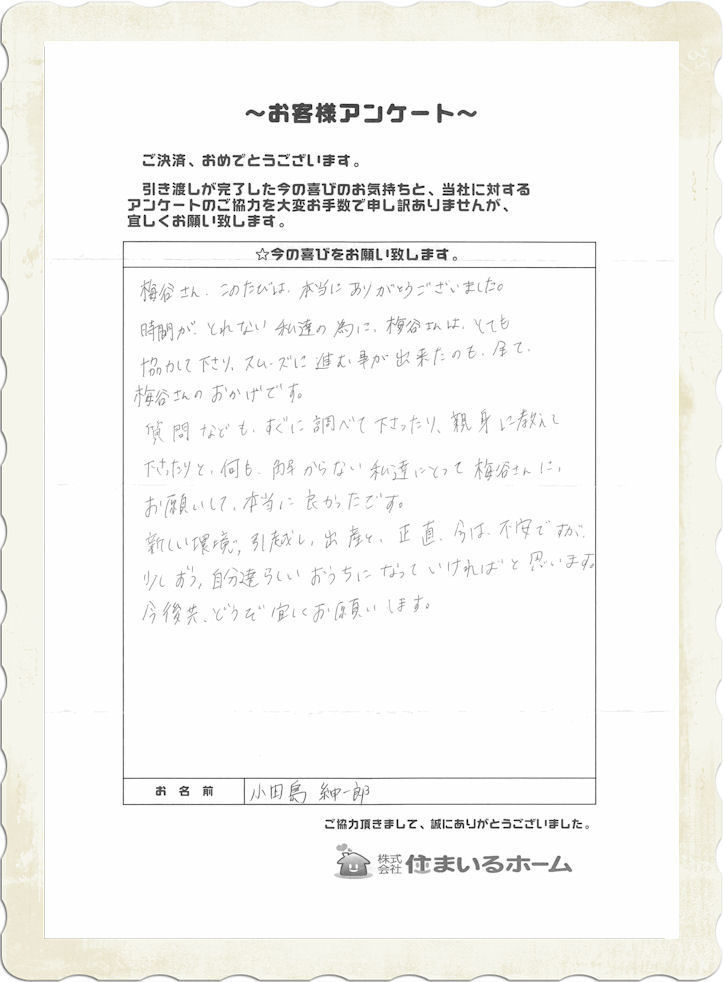 ～お客様アンケート～
ご決済、おめでとうございます。
引き渡しが完了した今の喜びのお気持ちと、当社に対する
アンケートのご協力を大変お手数で申し訳ありませんが、
宜しくお願い致します。
☆今の喜びをお願い致します。
梅谷さん、このたびは、本当にありがとうございました。
時間が、とれない私達の為に、梅谷さんは、とても
協力して下さり、スムーズに進む事が出来たのも、全て、
梅谷さんのおかげです。
質問なども、すぐに調べて下さったり、親身に教えて
下さったりと、何も、解からない私達にとって梅谷さんに、
お願いして、本当に良かったです。
新しい環境、引越し、出産と、正直、今は、不安ですが、
少しずつ、自分達らしいおうちになっていければと思います。
今後共、どうぞ宜しくお願いします。
お名前
小田島 紳一郎
ご協力頂きまして、誠にありがとうございました。
株式会社 住まいるホーム